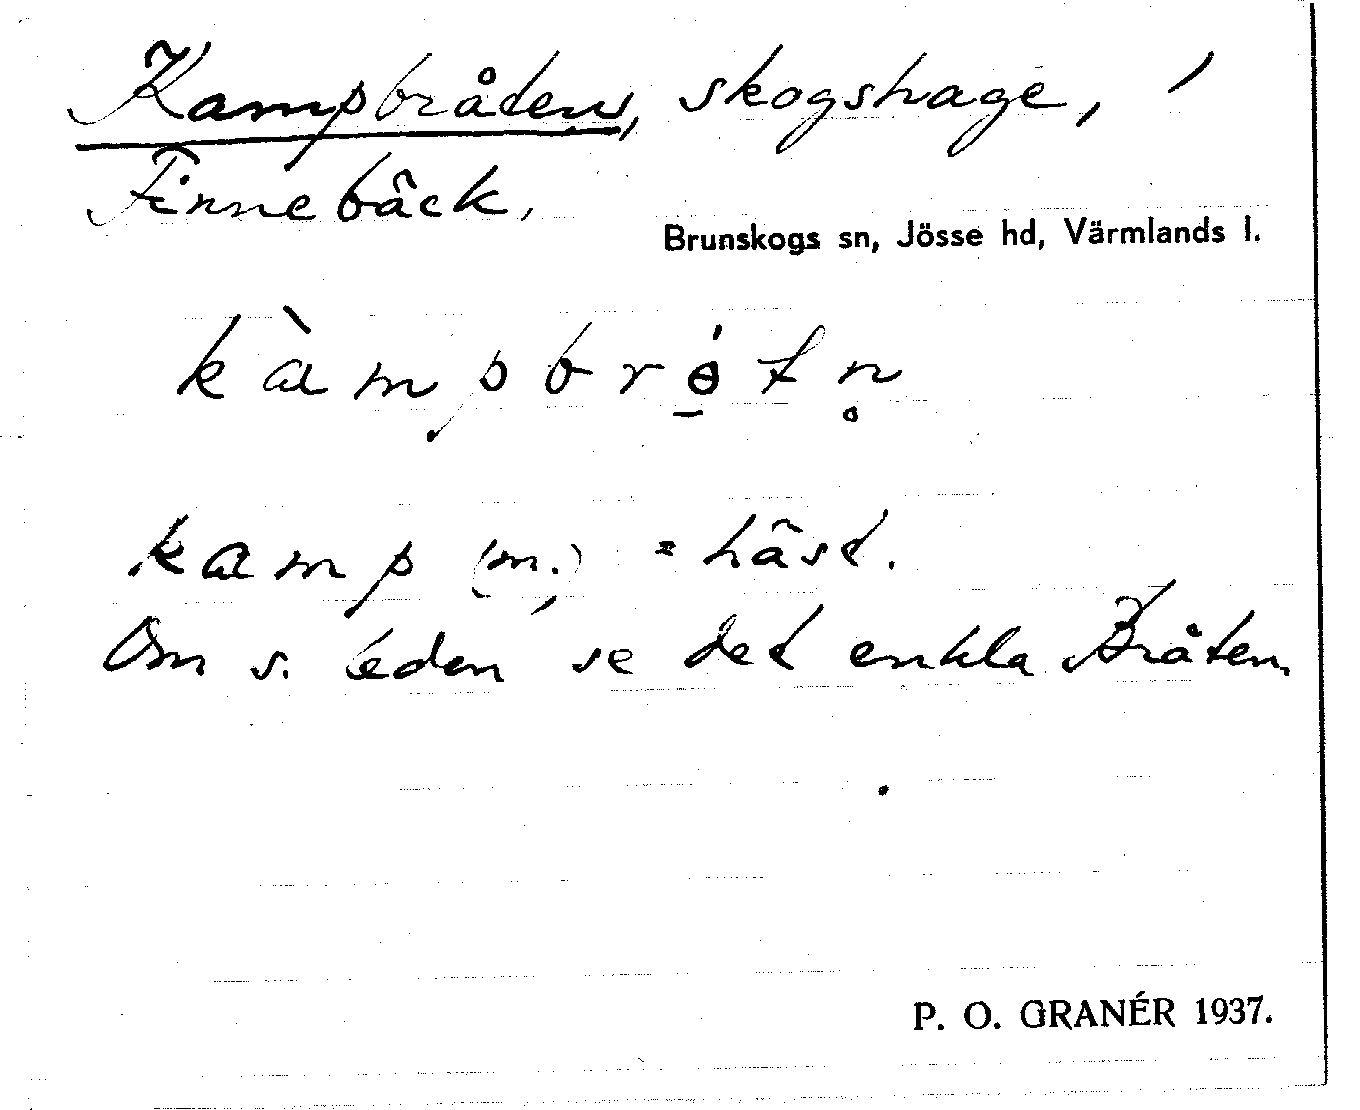 Kampbråten, skogshage, /
Finnebäck.
Brunskogs sn, Jösse hd, Värmlands l.
kàmpbrɵ̠́tn̥
kamp (m.) = häst.
Om s. leden se det enkla Bråten.
P. O. GRANÉR 1937.